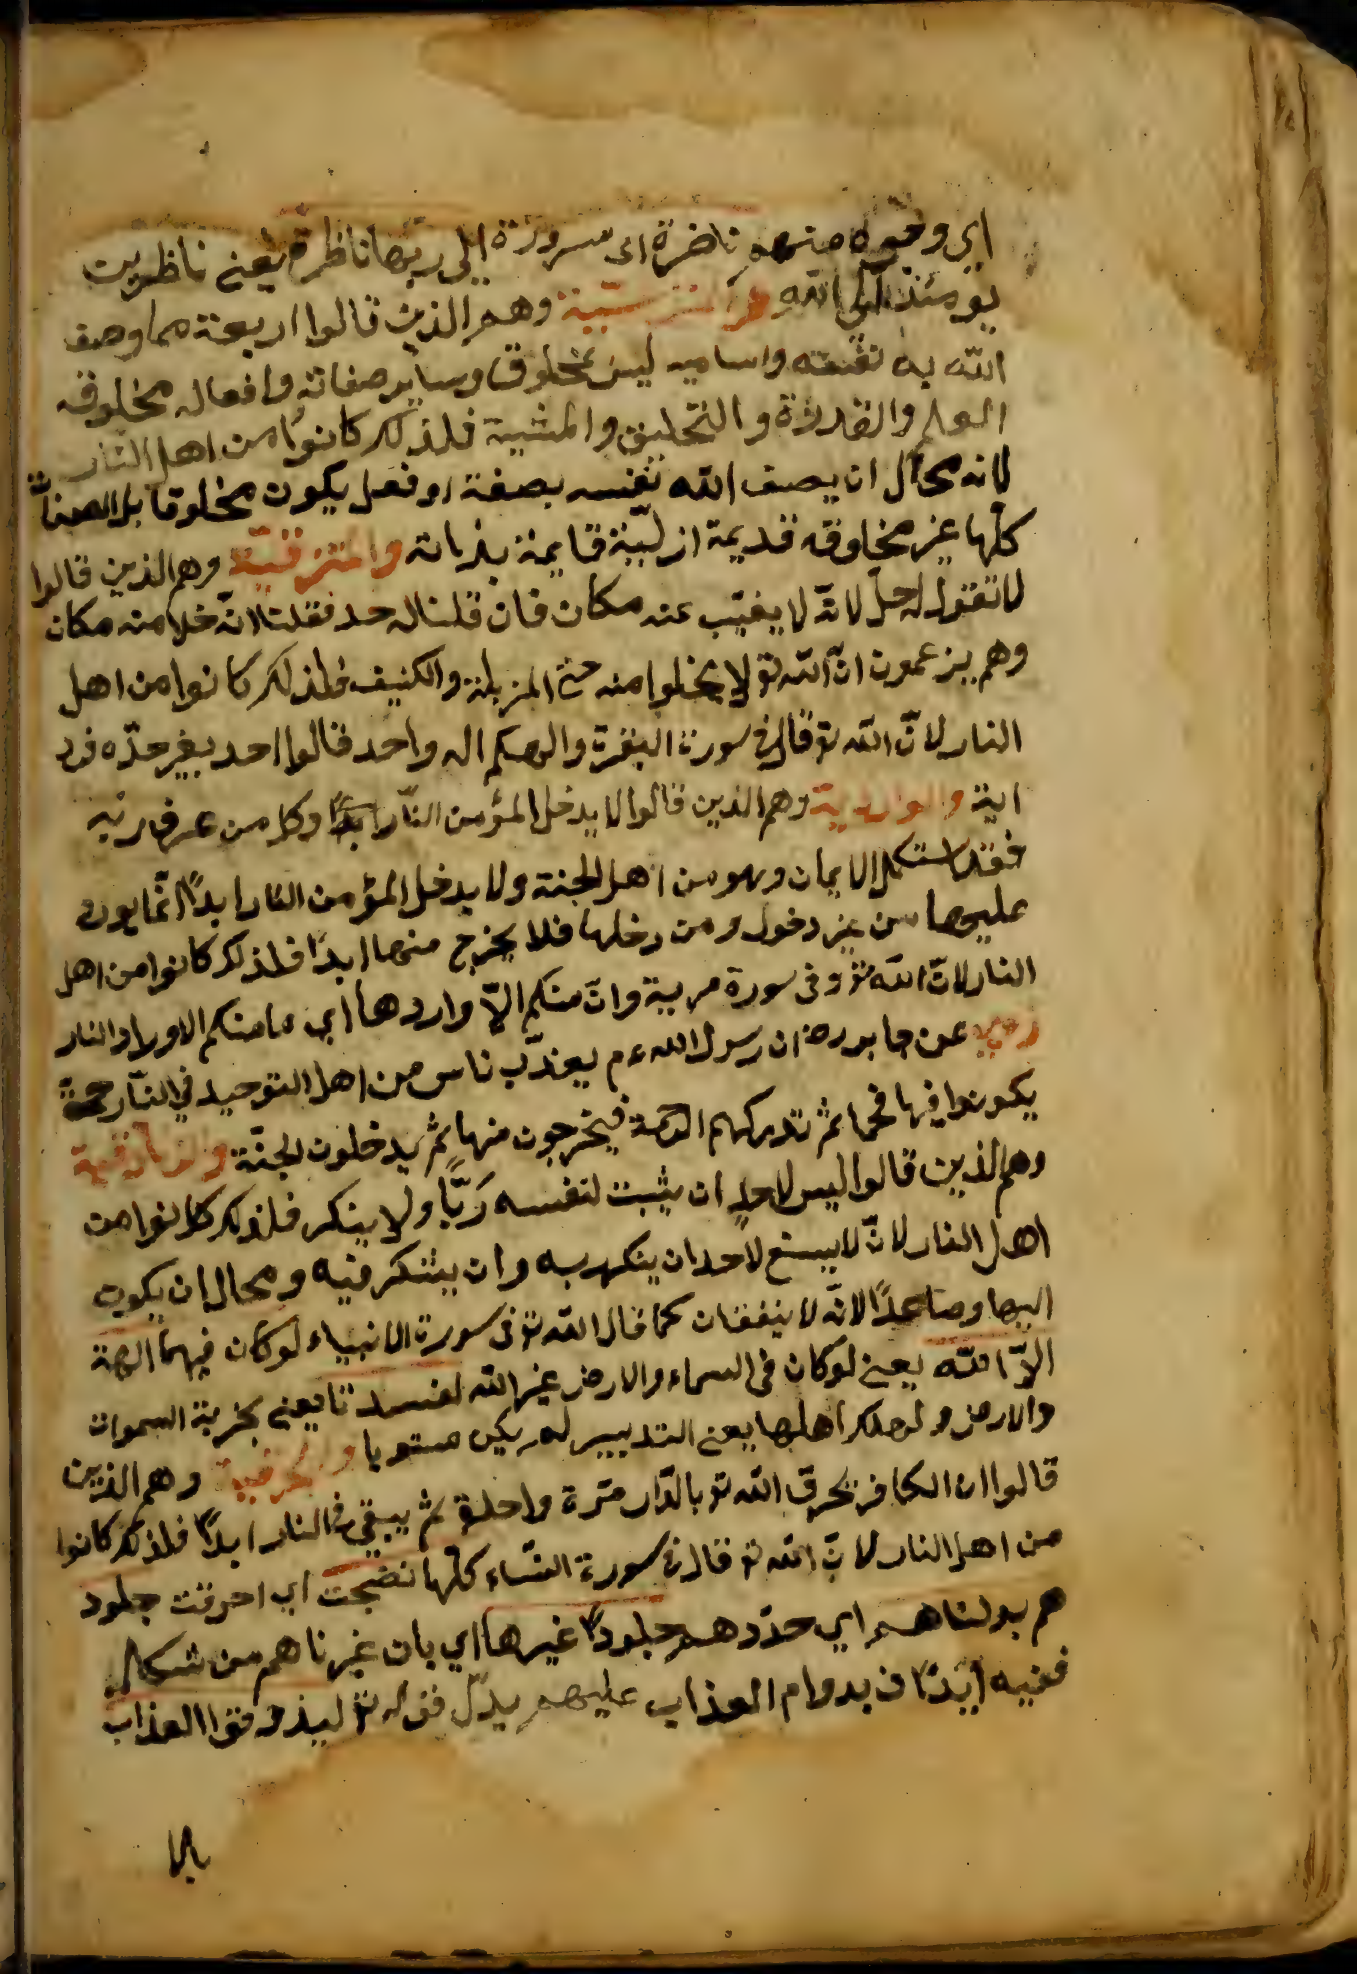 اي وجوه منهم ناضرة اى سرورة الى ربها ناظرة يعني ناظرين
يومئذ الى الله والمتربسية وهم الذين قالوا اربعة مما وصف
الله به نفسه واساميه ليس بمخلوق وساير صفاته وافعاله مخلوقه
العلم والقدرة والتخليق والمشية فلذلك كانوا من اهل النار
لانه محال ان يصف الله نفسه بصفة او فعل يكون مخلوقا بل الصفات
كلها غير مخلوقه قديمة ازلية قايمة بذاته والمتزقية وهم الذين قالوا
لا نقول له حل لانه لا يغيب عنه مكان فان قلنا له حد فقلنا لانه خلا منه مكان
وهم يزعمون ان الله تع لا يخلوا منه حتى المزبلة والكنيف فلذلك كانوا من اهل
النار لان الله تع قال في سورة البقرة والهكم اله واحد قالوا احد بغير حده فرد
اية والواردية وهم الذين قالوا لا يدخل المؤمن النار ابدا وكل من عرف ربه
فقد استكمل الايمان وهو من اهل الجنة ولا يدخل المؤمن النار ابدًا انما يورد
عليها من غير دخول ومن دخلها فلا يخرج منها ابدًا فلذلك كانوا من اهل
النار لان الله تع وفى سورة مريية وان منكم الا واردها اي ما منكم الا وراد النار
روي عن جابر رض ان رسول الله ءم يعذب ناس من اهل التوحيد في النار حتى
يكونوا فيها فحما ثم تدركهم الرحمة فيخرجون منها ثم يدخلون الجنة والزنادقية
وهم الذين قالوا ليس لاحد ان يثبت لنفسه ربًّا ولا ينكر فلذلك كانوا من
اهل النار لان لا يسع لاحد ان ينكر به وان يتنكر فيه ومحال ان يكون
الها وصاعدًا لانه لا ينفقان كما قال الله تع فى سورة الانبياء لوكان فيهما الهة
الا الله يعني لوكان فى السماء والارض غير الله لفسدتا يعني بخربة السموات
والارض ولهلك اهلها يعني التدبير لم يكن مستويا والحرقية وهم الذين
قالوا ان الكافر يحرق الله تع بالنار مرة واحدة ثم يبقى في النار ابدًا فلذلك كانوا
من اهل النار لان الله تع قال فى سورة النساء كلما نضجت اي احرقت جلود
هم بدلناهم اي جددهم جلودًا غيرها اي بان غيرناهم من شكل
ففيه ايذان بدوام العذاب عليهم يدل قوله تع ليذوقوا العذاب